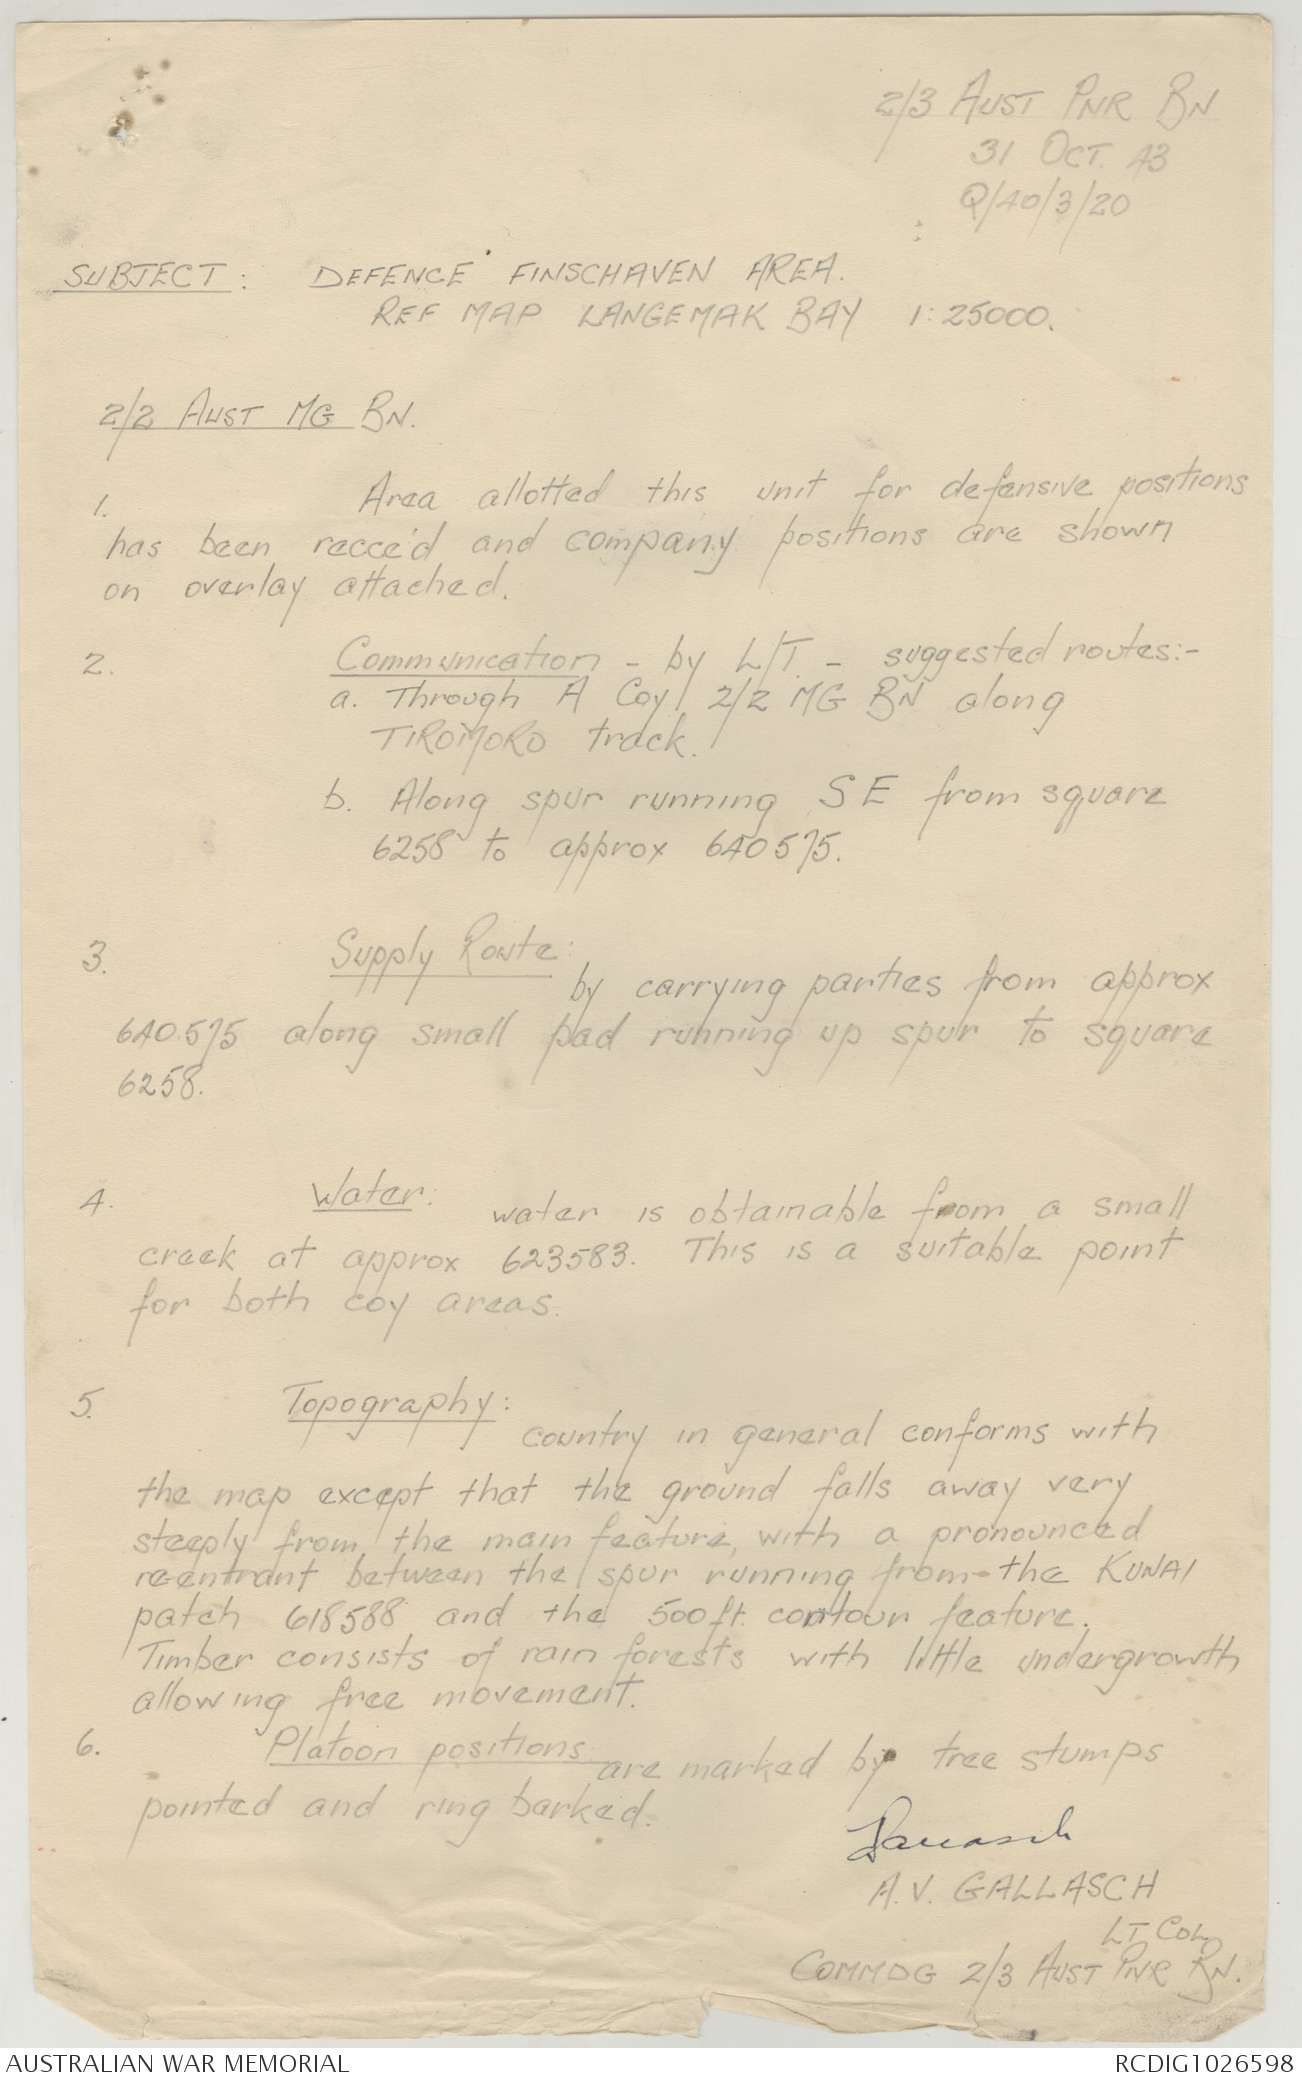 2/3 AUST PNR BN
31 OCT. 43
Q/40/3/20
SUBJECT: DEFENCE FINSCHAVEN AREA.
REF MAP LANGEMAK BAY 1:25000.
2/2 AUST MG BN.
1. Area allotted this unit for defensive positions
has been recce'd and company positions are shown
on overlay attached.
2. Communication - by L/T. - suggested routes:-
a. Through A Coy 2/2 MG BN along
TIROMORO track.
b. Along spur running SE from square
6258 to approx 640575.
3. Supply Route:
by carrying parties from approx
640575 along small pad running up spur to square
6258.
4. Water: water is obtainable from a small
creek at approx 623583. This is a suitable point
for both coy areas.
5. Topography:
country in general conforms with
the map except that the ground falls away very
steeply from the main feature, with a pronounced
re-entrant between the spur running from the KUNAI
patch 618588 and the 500ft. contour feature.
Timber consists of rain forests with little undergrowth
allowing free movement.
6. Platoon positions are marked by tree stumps
pointed and ring barked.
A.V. GALLASCH
LT COL
COMMDG 2/3 AUST PNR BN.
AUSTRALIAN WAR MEMORIAL
RCDIG1026598